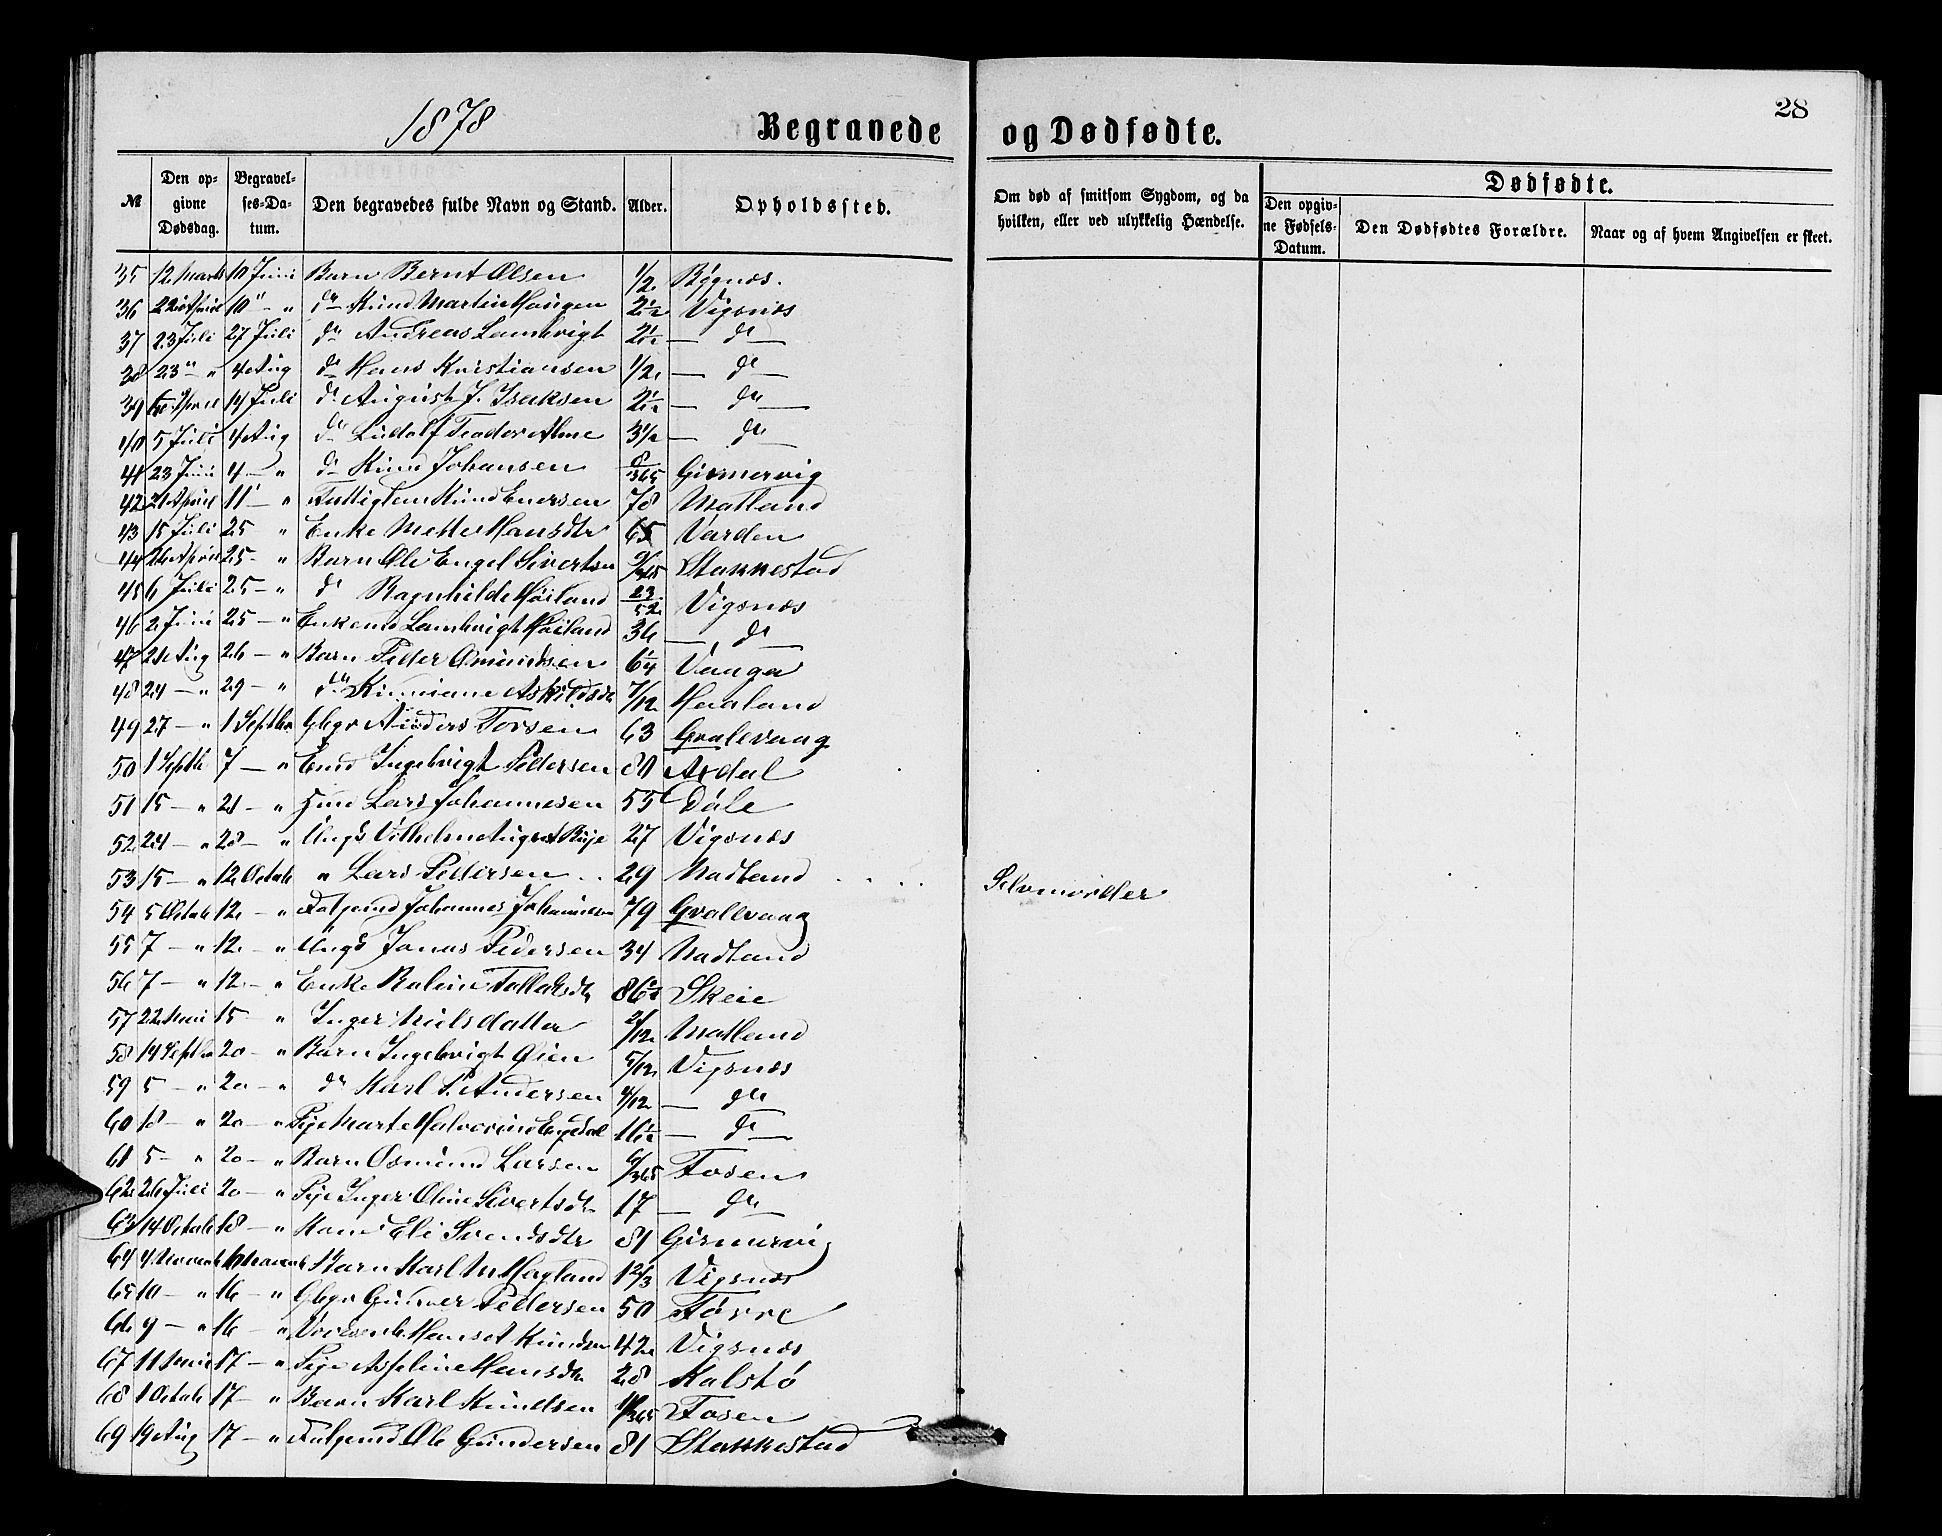 28
1878 Begravede og Dødfødte.
№ Den opgivne Dødsdag. Begravelses-Datum. Den begravedes fulde Navn og Stand. Alder. Opholdssted. Om død af smitsom Sygdom, og da hvilken, eller ved ulykkelig Hændelse. Dødfødte. Den opgivne Fødsels-Datum. Den Dødfødtes Forældre. Naar og af hvem Angivelsen er skeet.
35 12 Marts 10 Juni Barn Bernt Olsen 1/2 Bygnæs.
36 22 April 10 " - " do Knud Martin Haugen 2 1/2 Vigsnæs
37 23 Juli 27 Juli do Andreas Lambrigt 2 1/2 — do —
38 23 " " 4 Aug do Hans Kristiansen 1/2 — do —
39 April 14 Juli do August J. Isaksen 2 1/2 — do —
40 5 Juli 4 Aug do Ludolf Teodor Alme 3 1/2 — do —
41 23 Juni 4 — " do Knud Johansen 8/365 Gismervig
42 21 April 11 — " Knud Enersen 78 Matland
43 15 Juli 25 " Enke Mette Hansdtr 65 Varden
44 26 April 25 - " Barn Ole Engel Sivertsen Stakkestad
45 6 Juli 25 — " do Ragnhilde Høiland 23/52 Vigsnæs
46 2 Juni 25 — " Enkemd Lambrigt Høiland 36 — do —
47 21 Aug 26 — " Barn Peder Omundsen 6 1/4 Vaaga
48 24 — " 29 — " do Askildsdr 7/12 Haaland
49 27 — " 1 Septbr Gbgr Anders Torsen 63 Gvalevaag
50 1 Septb 7 — " Emd Ingebrigt Pedersen 80 Ardal
51 15 — " 21 — " Lars Johannesen 55 Dale
52 24 — " 28 — " Ungk Vilhelm August 27 Vigsnæs
53 15 — " 12 Octob " Lars Pedersen 29 Nadland Selvmorder
54 5 Octob 12 — " Johannes Johannesen 79 Gvallevaag
55 7 — " 12 — " Ungk Jonas Pedersen 34 Nadland
56 7 — " 12 — " Enke Malene Tollaksdtr 86 1/2 Skeie
57 22 15 — " Inger Nielsdatter 2/12 Matland
58 14 Septbr 20 — " Barn Ingebrigt Øien 5/12 Vigsnæs
59 5 — " 20 — " do Karl P. Andersen 4/12 — do —
60 18 — " 20 — " Pige Marte Halvorine 16 1/2 — do —
61 5 — " 20 — " Barn Osmund Larsen 6/365 Fosen
62 26 Juli 20 — " Pige Inger Oline Sivertsdtr 17 — do —
63 14 Octob 18 — " Kone Eli Svendsdtr 81 Gismervig
64 4 Novemb 6 Novemb Barn Karl M Hagland 1 2/3 Vigsnæs
65 10 — " 16 — " Gbgr Gunner Pedersen 50 Førre
66 9 — " 16 — " Hans A Knudsen 42 Vigsnæs
67 11 17 — " Pige Asseline Hansdtr 28 Kalstø
68 1 Octob 17 — " Barn Karl Knudsen Fosen
69 19 Aug 17 — " Ole Gundersen 81 Stakkestad